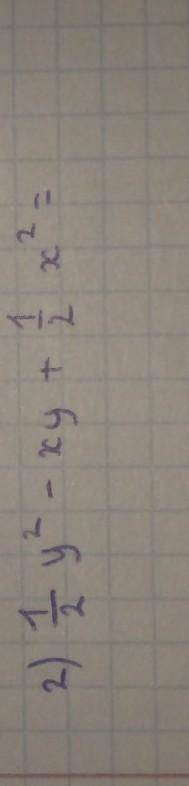 2) 1/2 y² - xy + 1/2 x² =